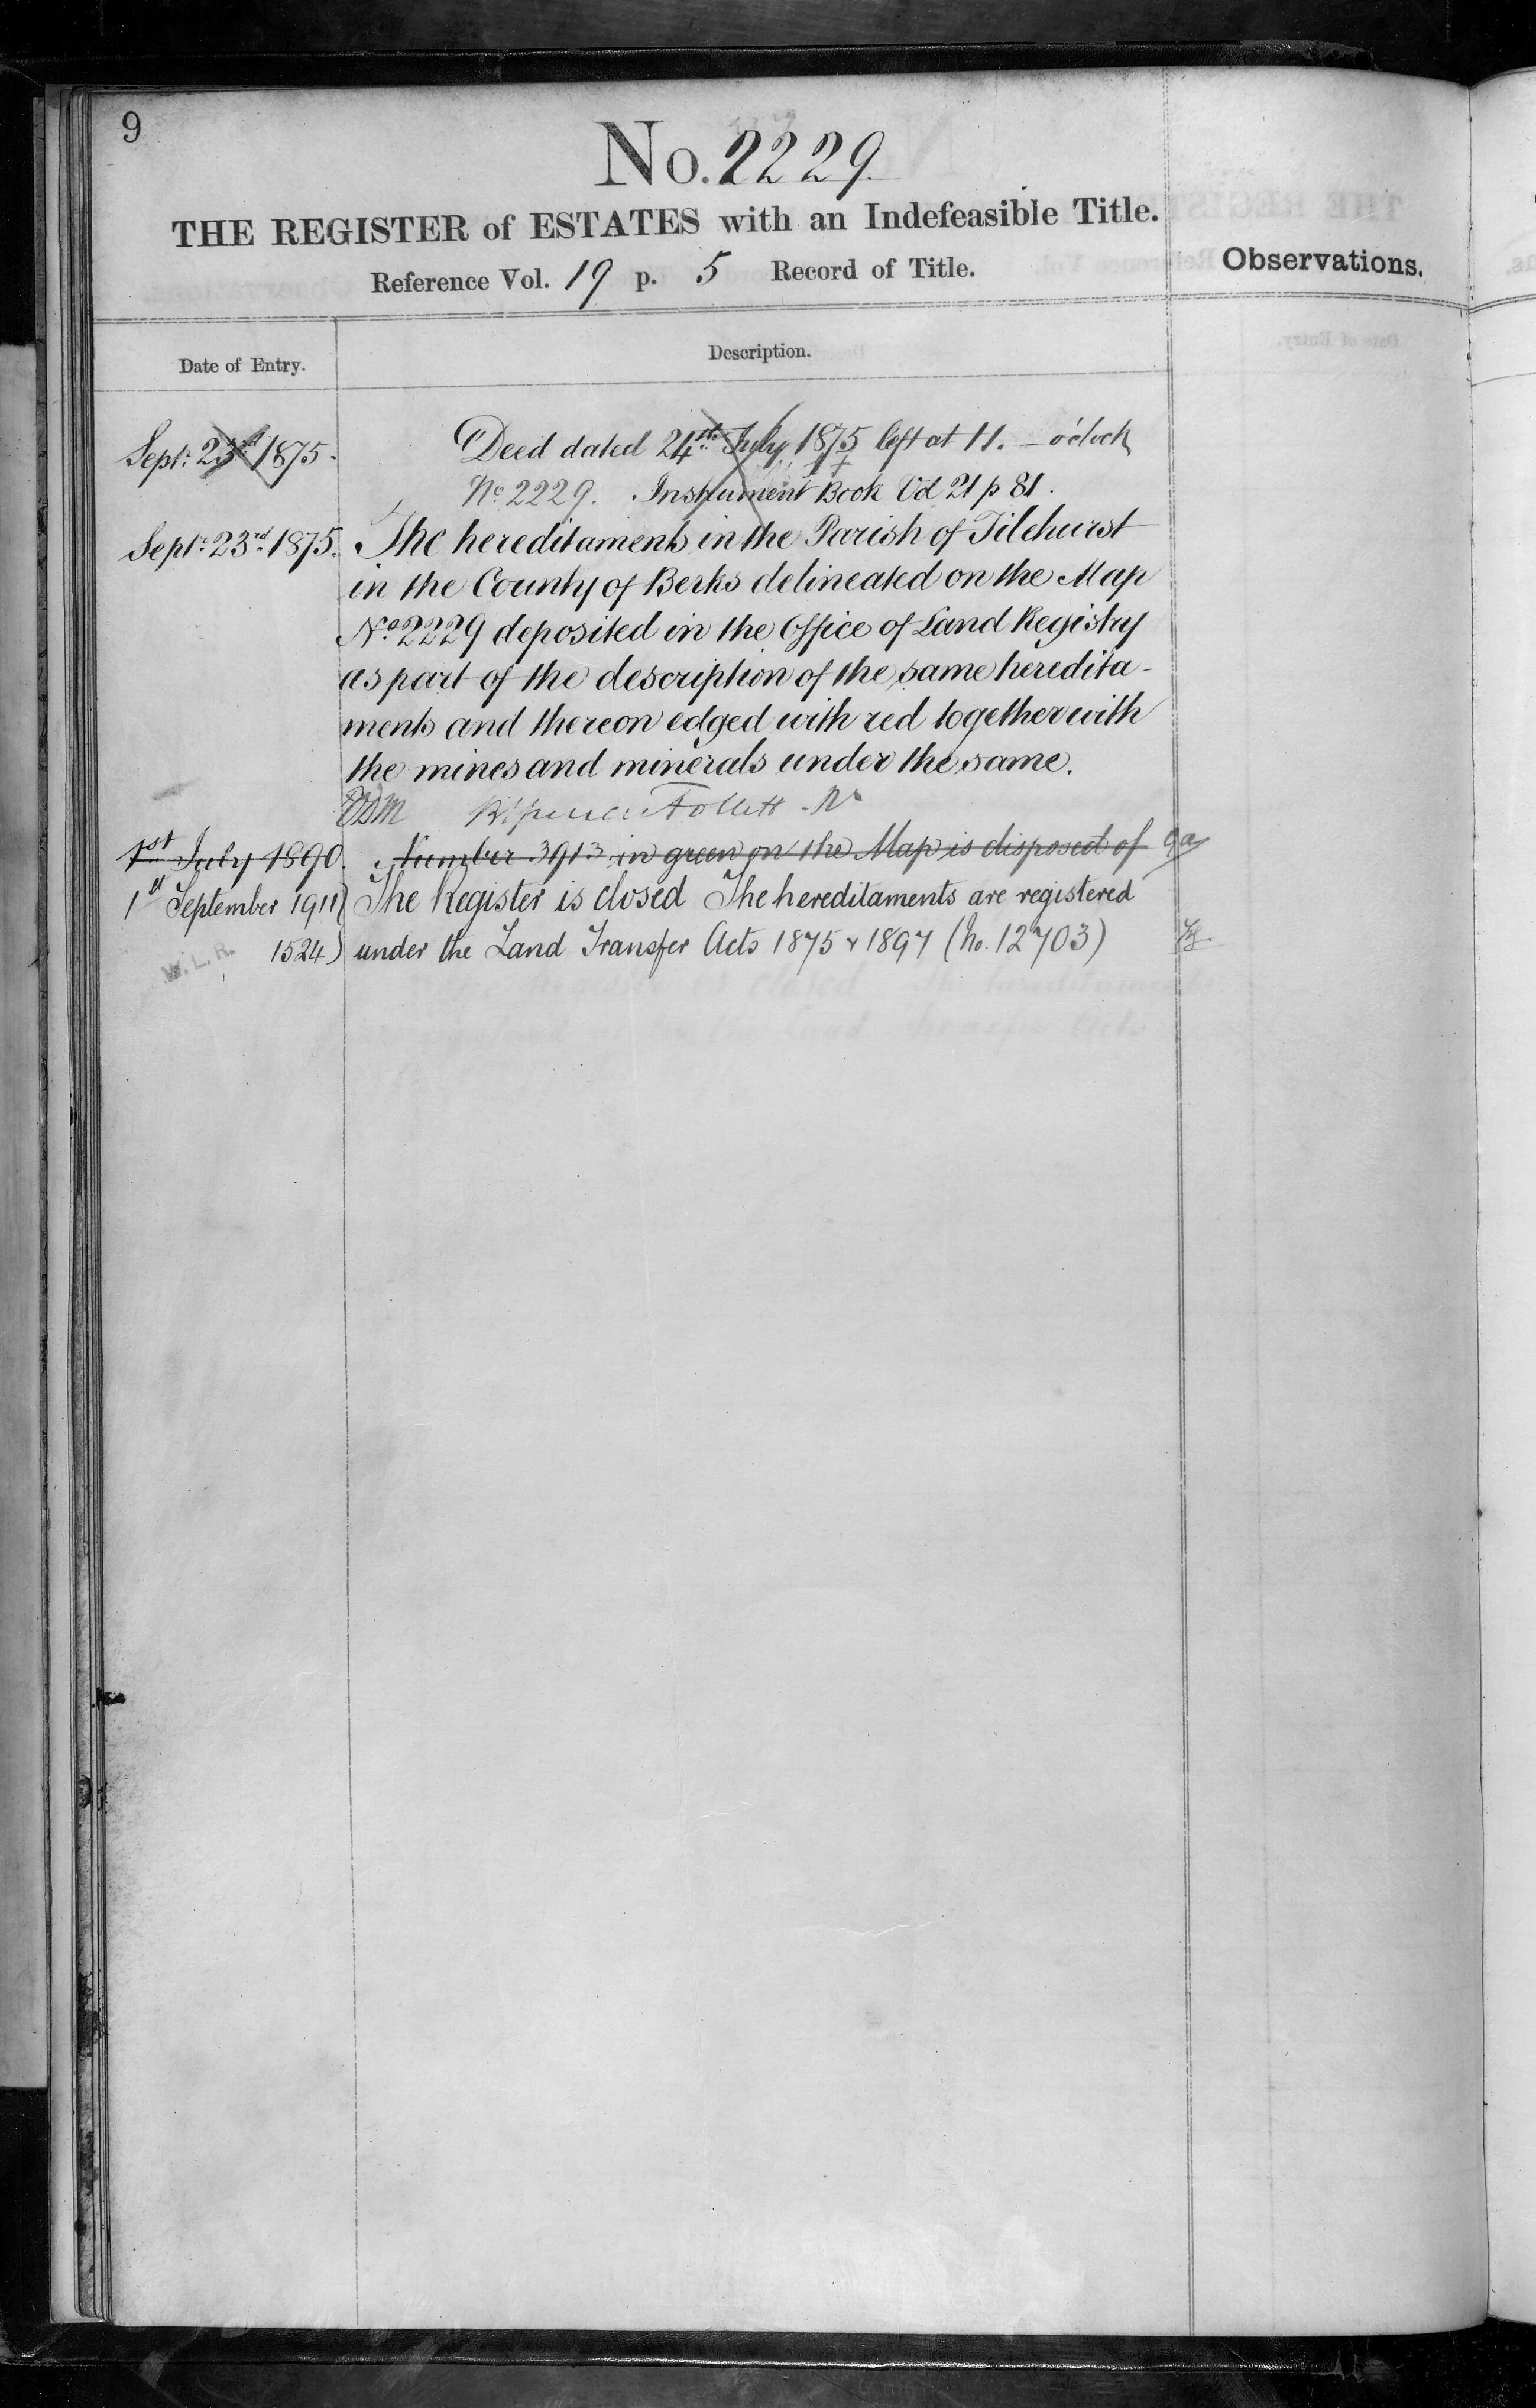 9
No. 2229.
THE REGISTER of ESTATES with an Indefeasible Title.
Reference Vol. 19 p. 5 Record of Title.
Observations.
Date of Entry.
Description.
Sept: 23rd 1875.
Deed dated 24th July 1875 left at 11. – o'clock
No 2229. Instrument Book Vol 21 p 81.
Sept: 23rd 1875. The hereditaments in the Parish of Tilehurst
in the County of Berks delineated on the Map
No 2229 deposited in the Office of Land Registry
as part of the description of the same heredita-
ments and thereon edged with red together with
the mines and minerals under the same.
Follett
1st July 1890. Number 3913 in green on the Map is disposed of
1st September 1911) The Register is closed The hereditaments are registered
1524) under the Land Transfer Acts 1875 & 1897 (No. 12703)
W. L. R.